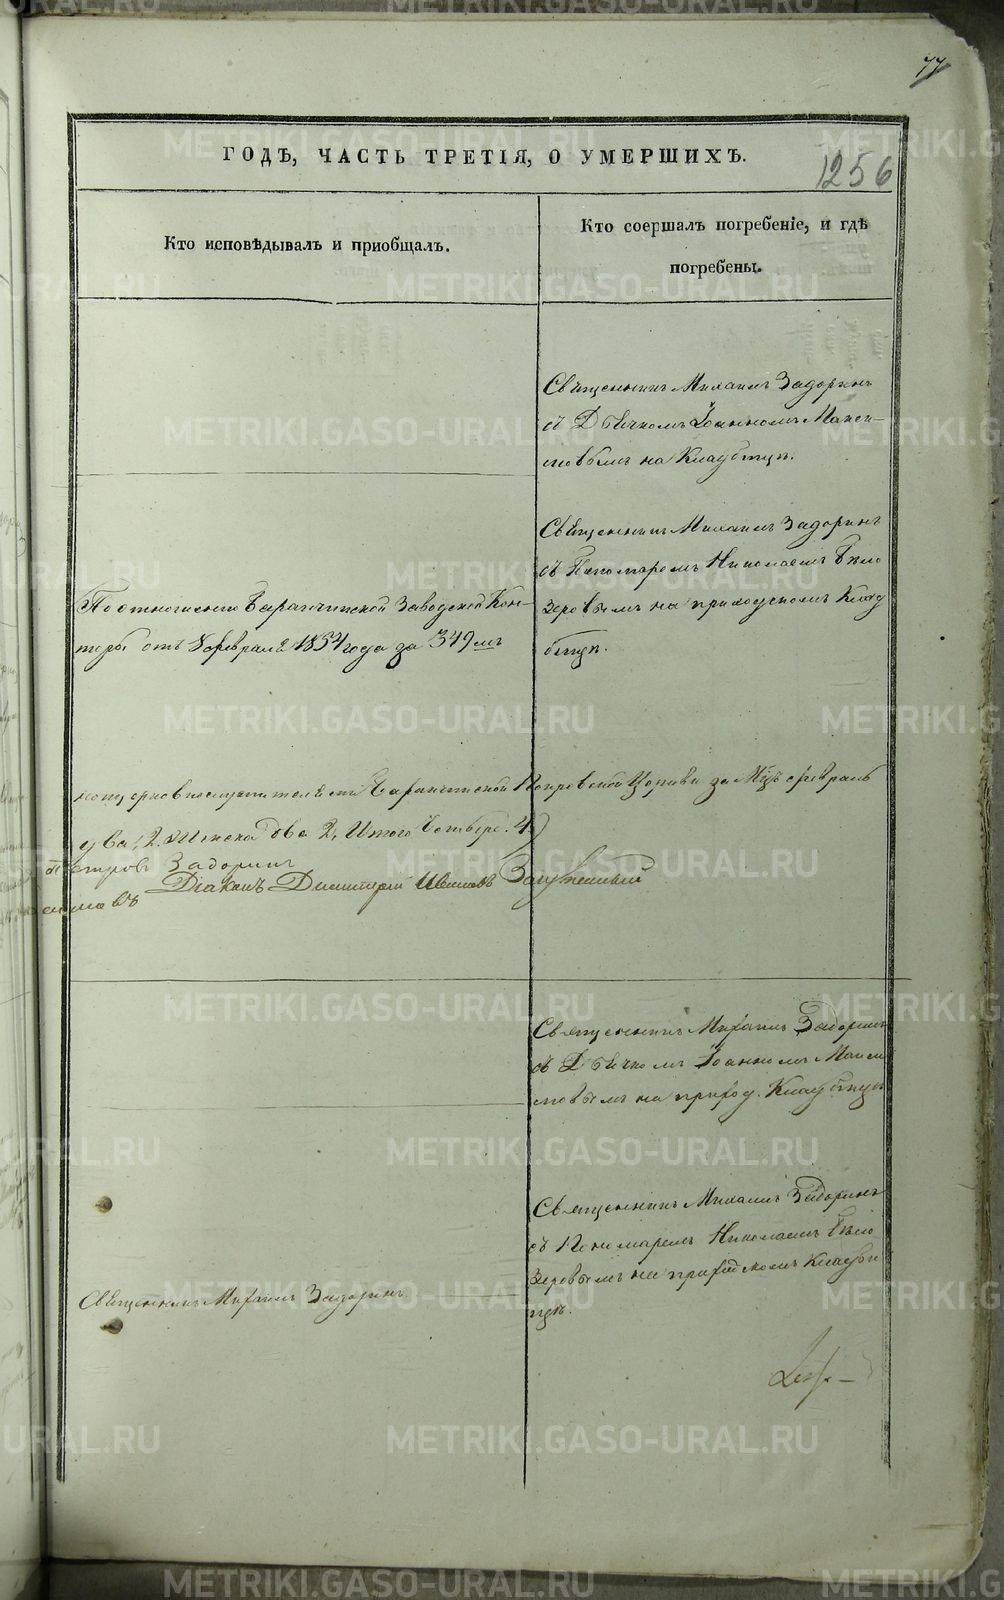 77
ГОДѢ, ЧАСТЬ ТРЕТІЯ, О УМЕРШИХЪ.
1256
Кто исповѣдывалъ и приобщалъ.
Кто соершалъ погребеніе, и гдѣ
погребены.
Священникъ Михаилъ Задоринъ
съ Дьячкомъ Іоанномъ
на Кладбищѣ.
По отношенію Баранчинской Заводской Кон-
торы отъ 8 февраля 1854 года за 349 мъ
Священникъ Михаилъ Задоринъ
съ Пономаремъ Николаемъ Бѣло
зеровымъ на приходскомъ Клад
бищѣ.
Баранчинской Покровской Церкви за Мцъ февраль
два, 2. Женска два 2, Итого Четыре. 4.)
Петровъ Задоринъ
Діаконъ Димитрій Ивановъ
Священникъ Михаилъ Задоринъ
съ Дьячкомъ Іоанномъ
на приход. Кладбищѣ
Священникъ Михаилъ Задоринъ
Священникъ Михаилъ Задоринъ
съ Пономаремъ Николаемъ Бѣло
зеровымъ на приходскомъ Кладби
щѣ.
METRIKI.GASO-URAL.RU